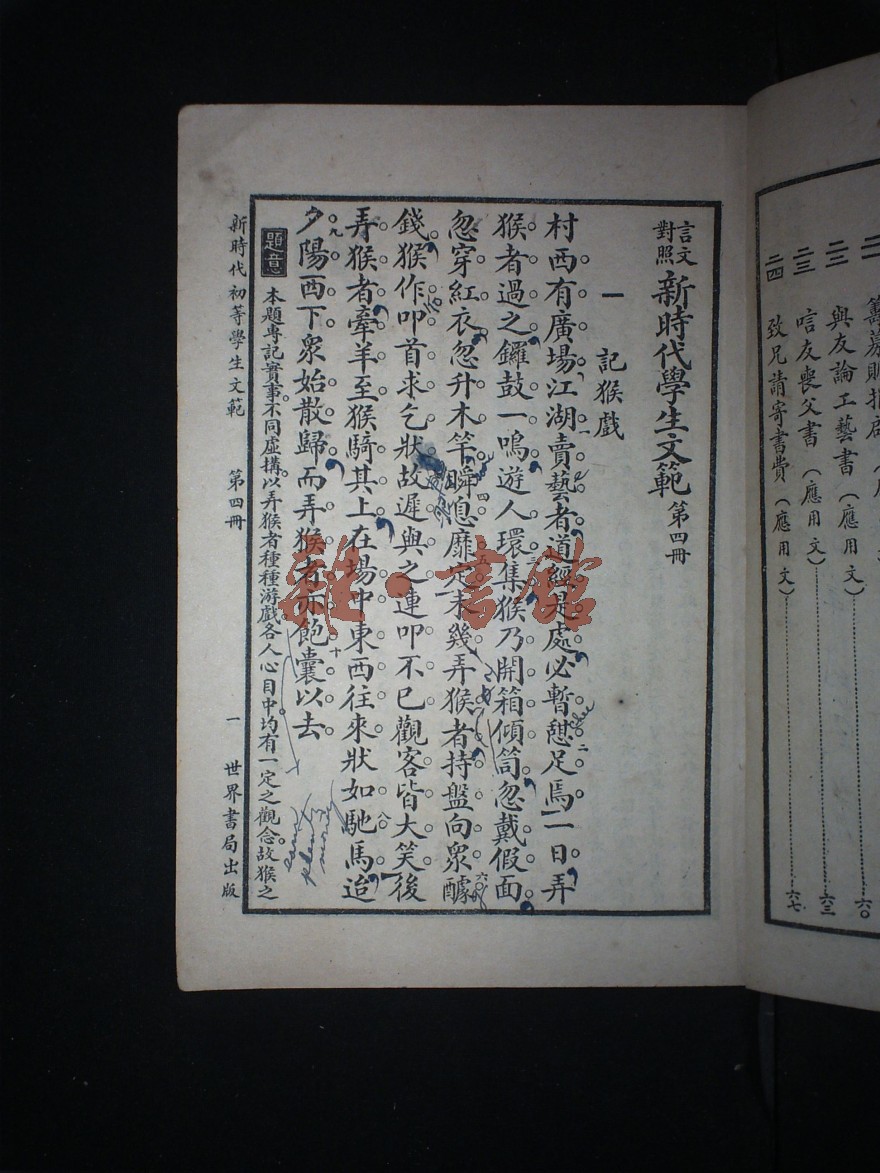 言文對照 新時代學生文範 第四冊
一 記猴戲
村西有廣場。江湖賣藝者。道經是處。必暫憩足焉。一日。弄
猴者過之。鑼鼓一鳴。遊人環集。猴乃開箱傾筒。忽戴假面。
忽穿紅衣。忽升木竿。瞬息靡定。未幾。弄猴者持盤向眾醵
錢。猴作叩首求乞狀。故遲與之。連叩不已。觀客皆大笑。後
弄猴者牽羊至。猴騎其上。在場中東西往來。狀如馳馬。迨
夕陽西下。眾始散歸。而弄猴者亦飽囊以去。
題意 本題專記實事。不同虛構。以弄猴者種種游戲。各人心目中均有一定之觀念。故猴之
新時代初等學生文範 第四冊 一 世界書局出版
二三 與友論工藝書(應用文)⋯⋯六〇
二三 唁友喪父書(應用文)⋯⋯六三
二四 致兄請寄書費(應用文)⋯⋯六七
雜·書館